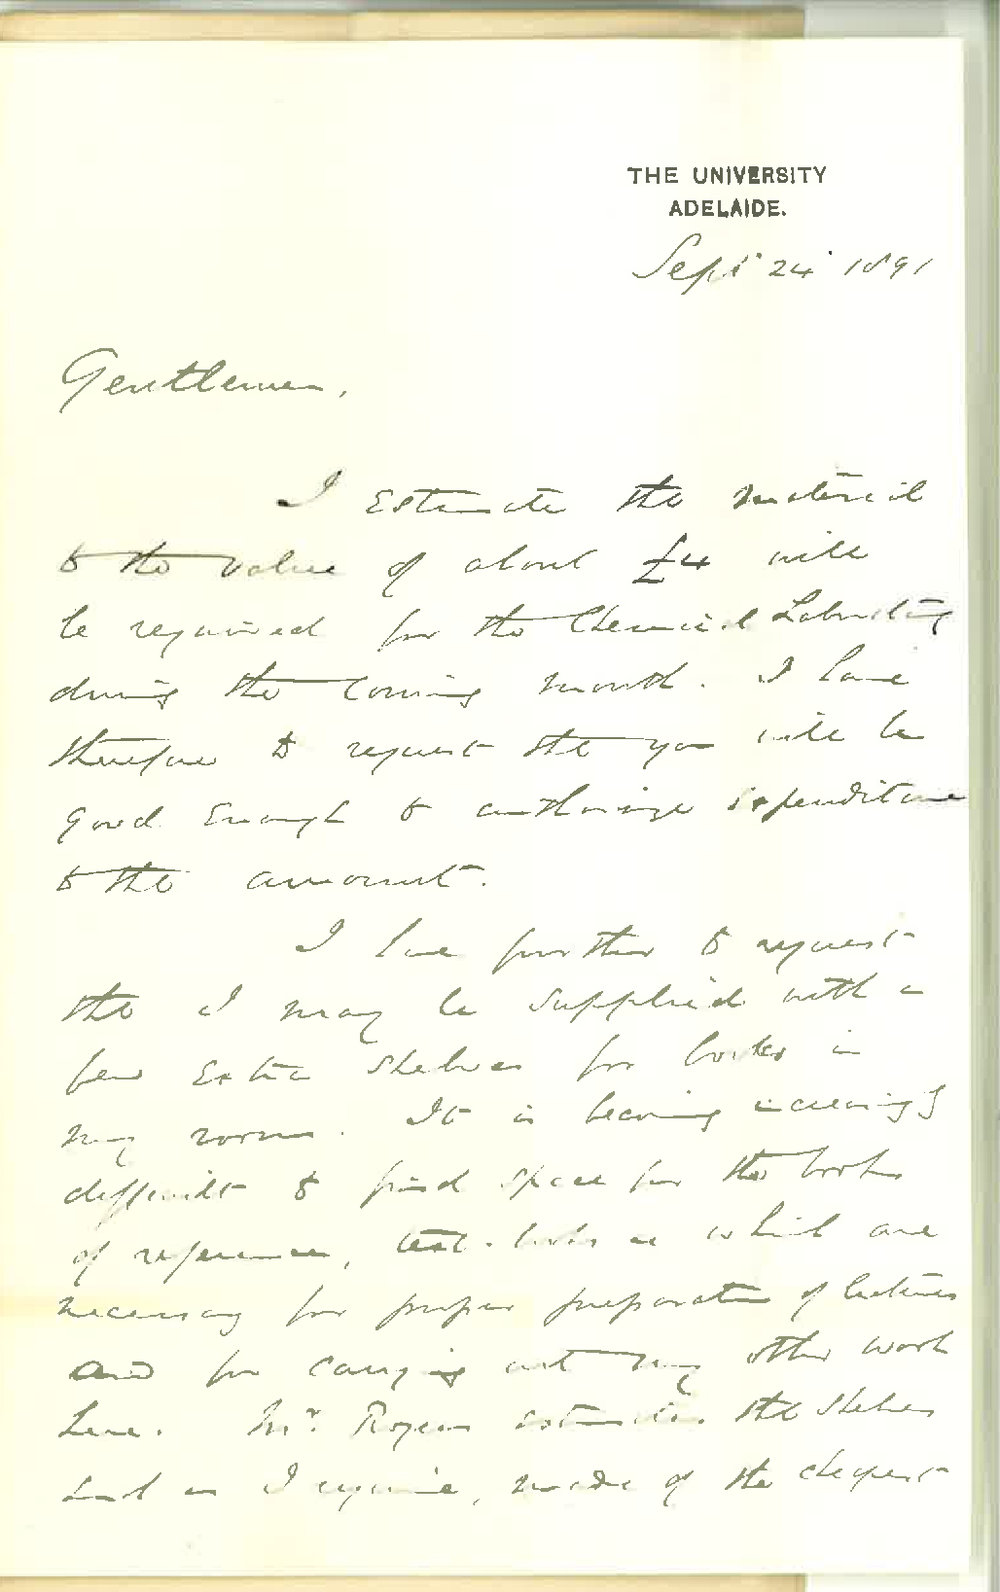 THE UNIVERSITY
ADELAIDE.
Sept 24 1891
Gentlemen,
I Estimate that material
to the value of about £4 will
be required for the Chemical Laboratory
during the coming month. I have
therefore to request that you will be
good Enough to authorize expenditure
to that amount.
I have further to request
that I may be supplied with a
few Extra shelves for books in
my room. It is becoming increasingly
difficult to find space for the books
of reference, text-books &c which are
necessary for proper preparation of lectures
and for carrying out my other work
here. Mr. Rogers estimates that shelves
such as I require, made of the cheapest